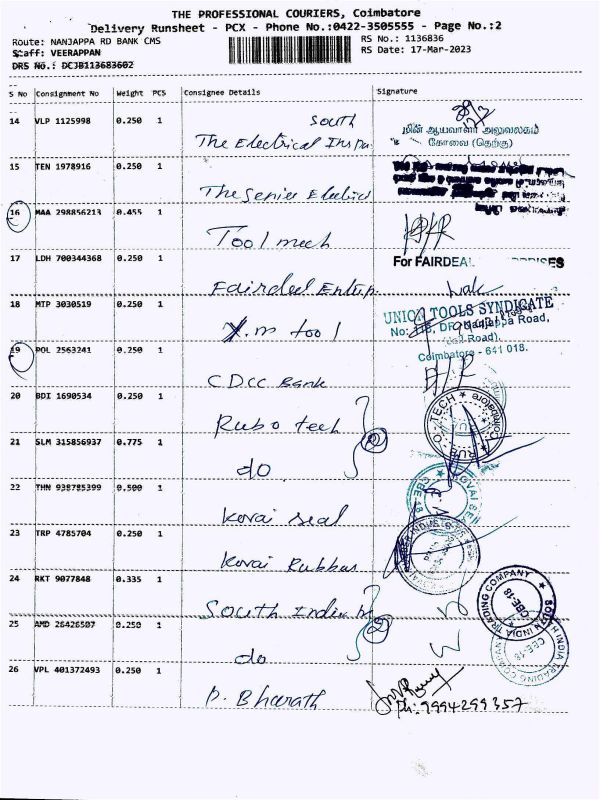 THE PROFESSIONAL COURIERS, Coimbatore
Delivery Runsheet - PCX - Phone No.:0422-3505555 - Page No.:2
Route: NANJAPPA RD BANK CMS
RS No.: 1136836
Staff: VEERAPPAN
RS Date: 17-Mar-2023
DRS No.: DCJB113683602
S No Consignment No Weight PCS Consignee Details Signature
14 VLP 1125998 0.250 1 South
The Electrical Inspa.
மின் ஆய்வாளர் அலுவலகம்
கோவை (தெற்கு)
15 TEN 1978916 0.250 1
The Senior Electric
16 MAA 298856213 0.455 1
Tool mech
17 LDH 700344368 0.250 1
For FAIRDEAL
Fairdeel Entrp.
18 MTP 3030519 0.250 1
UNION TOOLS SYNDICATE
No: 118, DR. Nanjappa Road,
Road),
Coimbatore - 641 018.
Y.m tool
19 POL 2563241 0.250 1
CDCC Bank
20 BDI 1690534 0.250 1
Rubo tech
RUB-O-TECH
Coimbatore
21 SLM 315856937 0.775 1
do
22 THN 938785399 0.500 1
Kovai seal
CBE-18
23 TRP 4785704 0.250 1
Kovai Rubbus
24 RKT 9077848 0.335 1
South Indian
SOUTH INDIA TRADING COMPANY
CBE-18
25 AMD 26426507 0.250 1
do
SOUTH INDIA TRADING COMPANY
CBE-18
26 VPL 401372493 0.250 1
P. Bharath
Ph: 9994299357